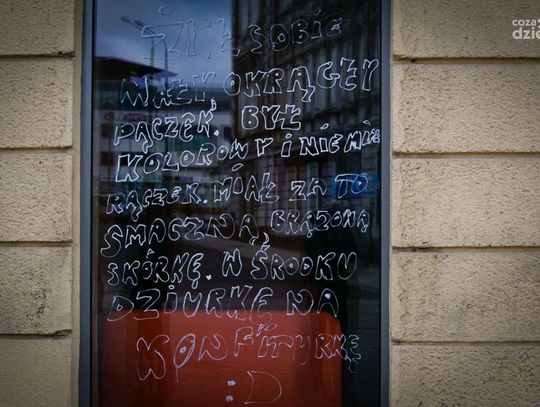 coza
dzień
ŻYŁ SOBIE
MAŁY, OKRĄGŁY
PĄCZEK. BYŁ
KOLOROWY I NIE MIAŁ
RĄCZEK. MIAŁ ZA TO
SMACZNĄ, BRĄZOWĄ
SKÓRKĘ. W ŚRODKU
DZIURKĘ NA
KONFITURKĘ
:D